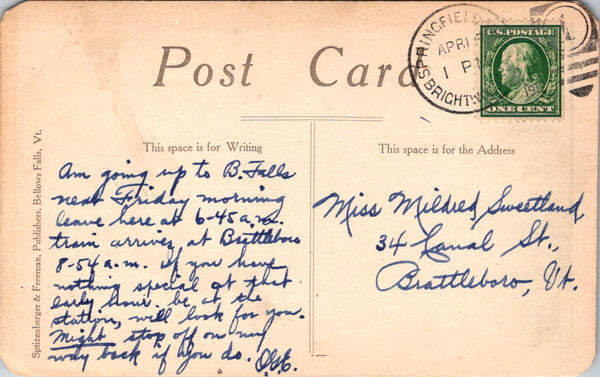 Post Card
SPRINGFIELD
APR
1 P
BRIGHTW
U.S. POSTAGE
ONE CENT
1
This space is for Writing
This space is for the Address
Spitzenberger & Freeman, Publishers, Bellows Falls, Vt.
Am going up to B. Falls
near Friday morning
leave here at 6-45 a.m.
train arrives at Brattleboro
8-54 a.m. if you have
nothing special at that
early hour. be at the
station, will look for you.
Might stop off on my
way back if you do. O.G.E.
Miss Mildred Sweetland
34 Canal St.,
Brattleboro, Vt.